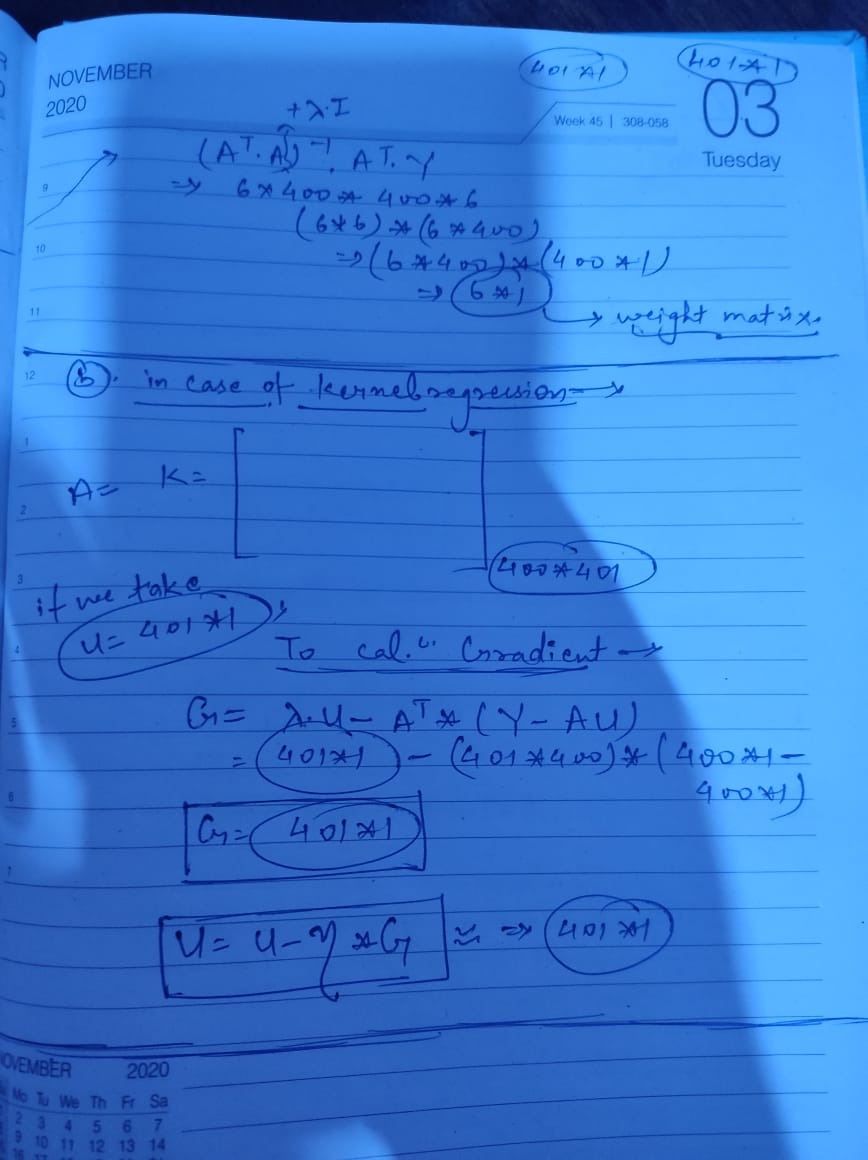 NOVEMBER
2020
401*1
401*1
03
Week 45 | 308-058
Tuesday
+λ.I
(Aᵀ.A)⁻¹. Aᵀ.Y
9
⇒ 6*400 * 400*6
(6*6) * (6*400)
10
⇒ (6*400) * (400*1)
⇒ 6*1
11
→ weight matrix.
12
(b). in case of kernel regression →
1
A= K= [ ]
2
400*401
3
if we take,
U= 401*1,
4
To cal. Gradient →
5
G= λ.U- Aᵀ * (Y-AU)
= 401*1 - (401*400) * (400*1 -
400*1)
6
G= 401*1
7
U= U-η*G ≈ ⇒ 401*1
NOVEMBER 2020
Mo Tu We Th Fr Sa
2 3 4 5 6 7
9 10 11 12 13 14
16 17